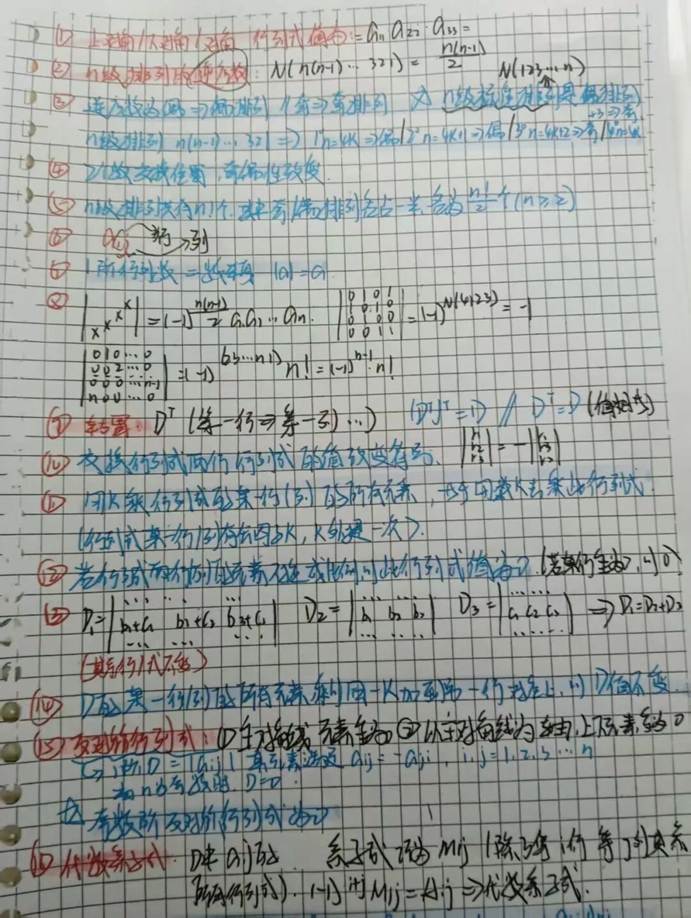 ① 上三角/下三角/对角 行列式值为:= a₁₁ a₂₂·a₃₃ =
② n级排列的逆序数: N(n(n-1)…321) = n(n-1)/2 N(123…n)
③ 逆序数为偶⇒偶排列 // 奇⇒奇排列 n级标准排列是偶排列
n级排列 n(n-1)…321 ⇒ 1° n=4k⇒偶/2° n=4k+1⇒偶/3° n=4k+2⇒奇/
④ 2个数交换位置,奇偶性改变
⑤ n级排列共有n!个,其中奇/偶排列各占一半,各为 n!/2 个(n≥2)
⑥ 行 列
1阶行列式 |a|=a
⑧ = (-1)^{n(n-1)/2} a₁a₂…aₙ. |0 1 0 0| = (-1)^{N(4123)} = -1
|0 1 0 … 0; 0 0 2 … 0; 0 0 0 … n-1; n 0 0 … 0| = (-1) n! = (-1)^{n-1}·n!
⑨ 转置: Dᵀ (第一行⇒第一列)…) (Dᵀ)ᵀ=D // Dᵀ=D (值相等)
⑩ 交换行列式两行 行列式的值改变符号. |r₁ r₂ r₃| = -|
⑪ 用k乘行列式的某一行(列)的所有元素,等于用数k去乘此行列式.
(行列式某一行(列)有公因子k,k外提一次).
⑫ 若行列式有两行(列)的元素 成比例,则此行列式值为0.(若某行全为0,则0)
⑬ D₁=|b₁+c₁ b₂+c₂ b₃+c₃| D₂=|b₁ b₂ b₃| D₃=|c₁ c₂ c₃| ⇒ D₁=D₂+D₃
(其余行/列不变)
⑭ D的某一行(列)的所有元素乘以同一k加至另一行对应上,则D值不变.
⑮ 反对称行列式:①主对角线元素全为0 ②以主对角线为 上下元素 为0
D=|aij| 其元素满足 aij=-aji, i,j=1,2,3…n
n为奇数时 D=0
奇数阶反对称行列式为0
⑯ 代数余子式. D中 aij的 余子式记为 Mij (除了第i行第j列其余
行列式). (-1)^{i+j} Mij = Aij ⇒代数余子式.